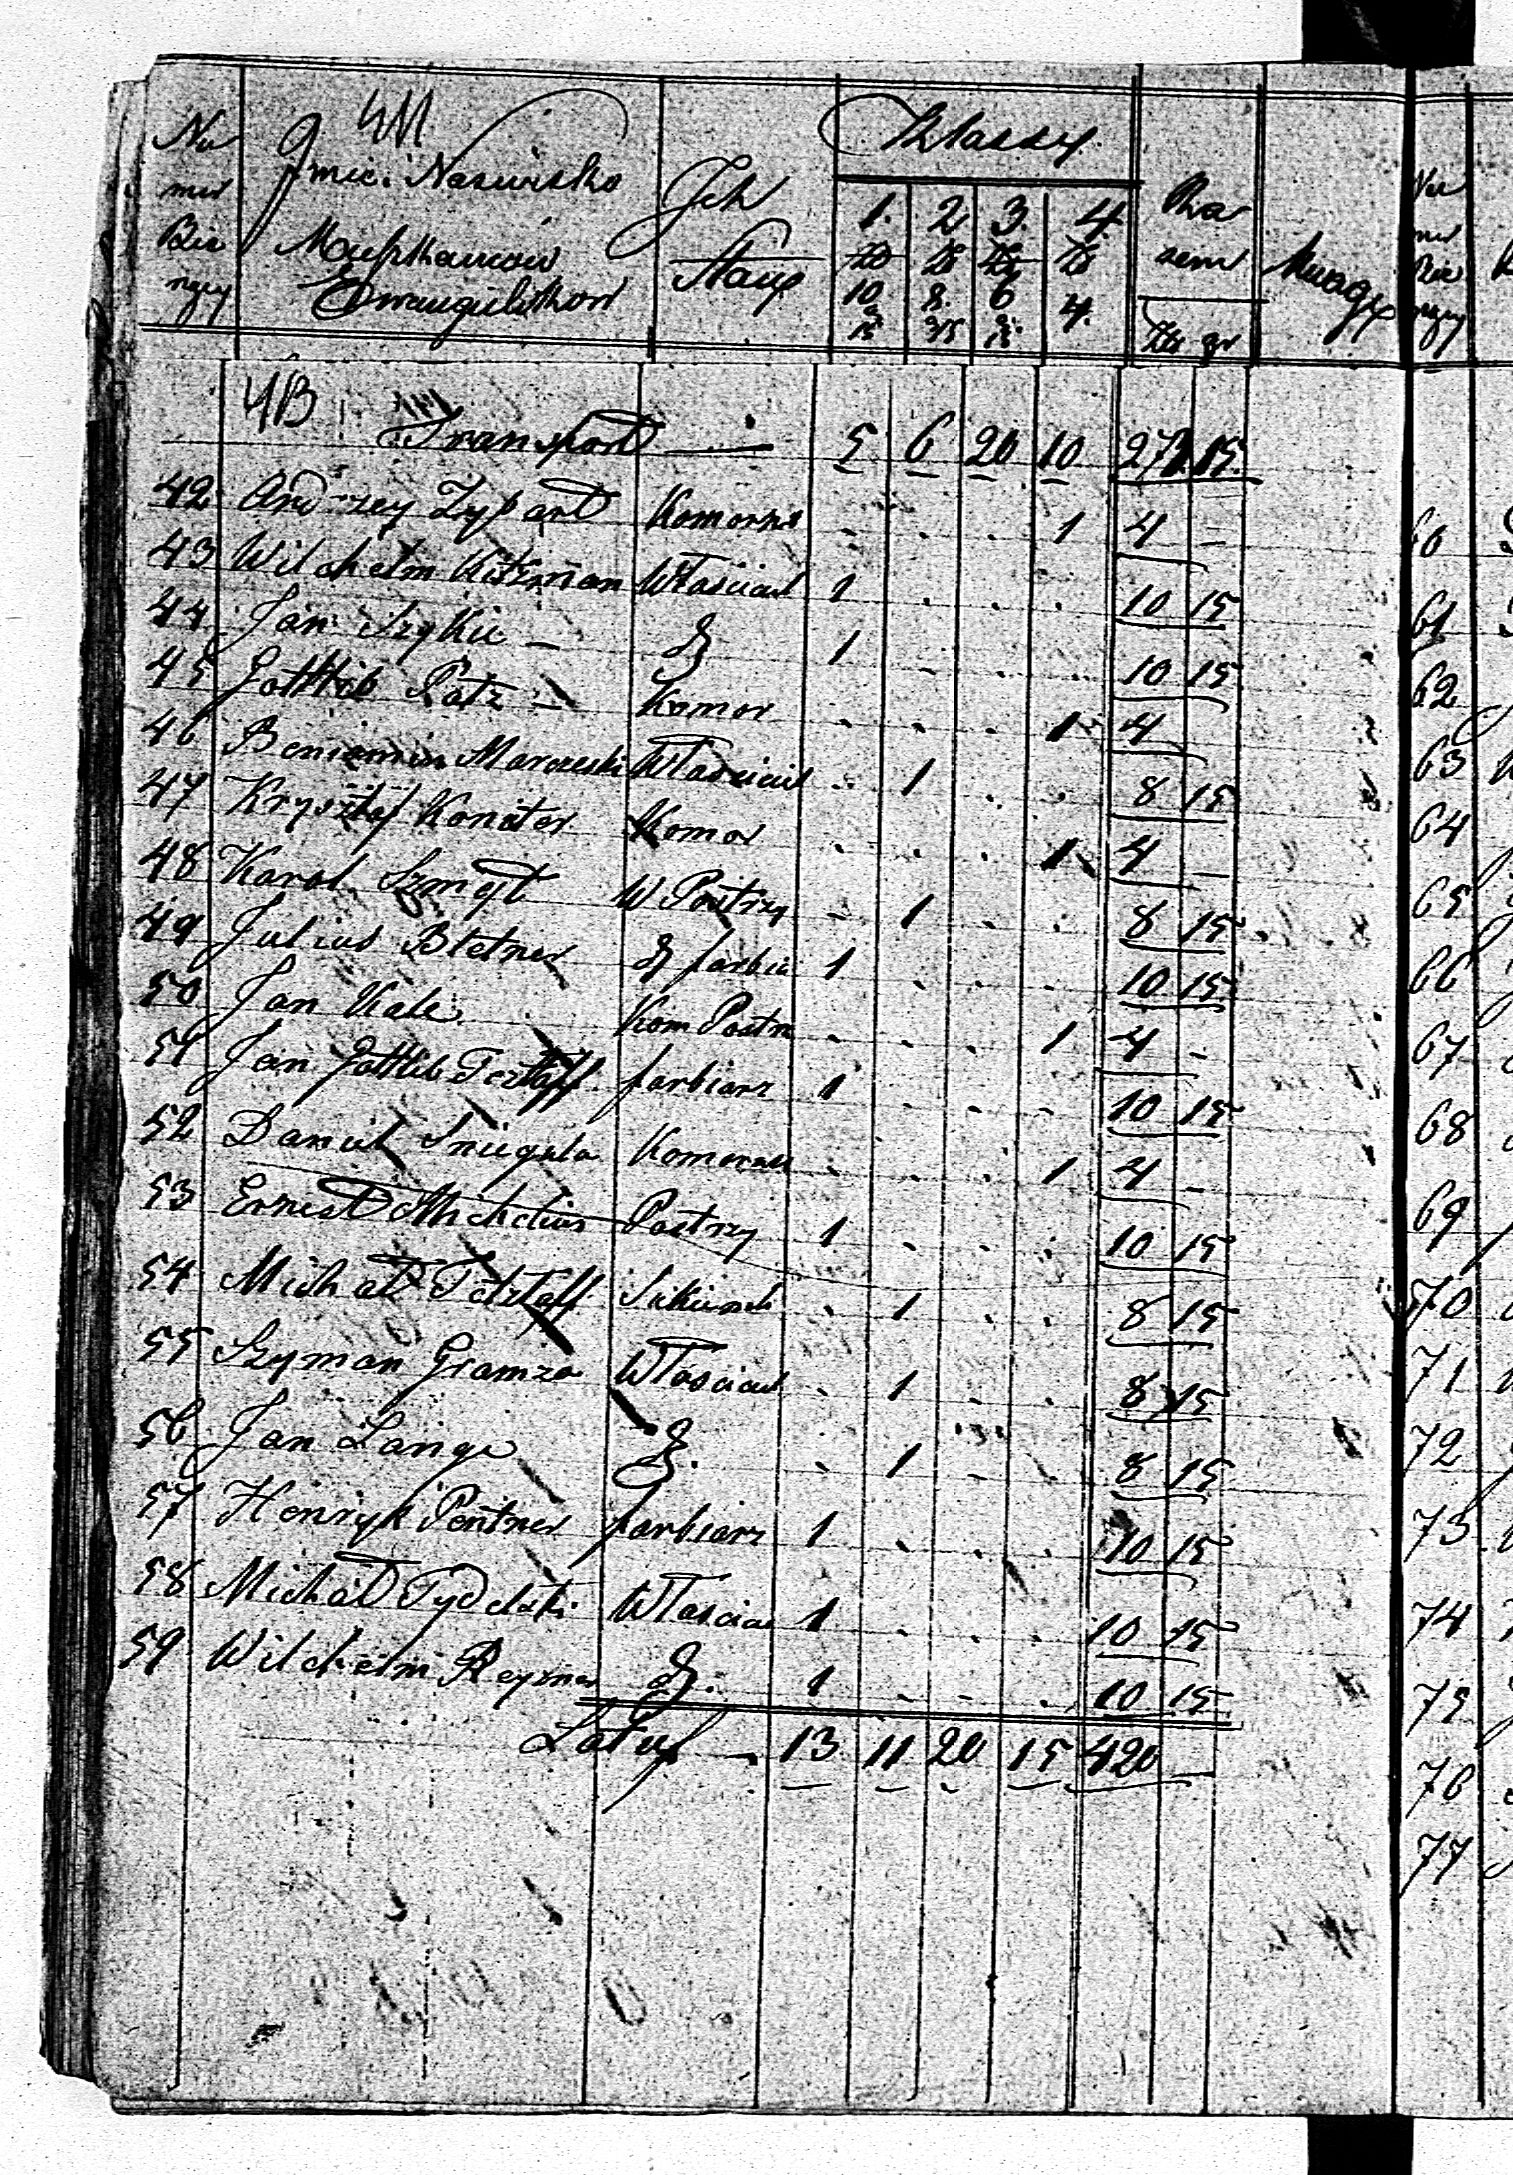 4M
Nu
mer
Bie
rzący
Imie i Nazwisko
Mieszkancow
Ewangielikow
Ich
Stan
Klassy
1. 2 3. 4.
10 8. 6 4.
15 15 15
Ra
zem
Zł gr
Uwagi
4B Transport — 5 6 20 10 271 15
42 Andrzey Zypart Komorni 1 4 -
43 Wilchelm Kitzman Właściciel 1 10 15
44 Jan Szykie - 1 10 15
45 Gottlieb Patz - Komor 1 4
46 Beniamin Marczeski Właściciel 1 8 15
47 Krysztof Konater Komor 1 4 -
48 Karol Szmyt W Postrzy 1 8 15
49 Julius Bletner farbia 1 10 15
50 Jan Kale Kom Postrz 1 4 -
51 Jan Gottlib Tezlaff farbiarz 1 10 15
52 Daniel Sniegula Komornik 1 4 -
53 Ernest Michelius Postrzy 1 10 15
54 Michał Tetzlaff Sukienik 1 8 15
55 Szyman Gramza Właściciel 1 8 15
56 Jan Lange 1 8 15
57 Henryk Pentner farbiarz 1 10 15
58 Michał Tydelski Właścici 1 10 15
59 Wilchelm Reyzner 1 10 15
Latus - 13 11 20 15 420 -
60
61
62
63
64
65
66
67
68
69
70
71
72
73
74
75
76
77